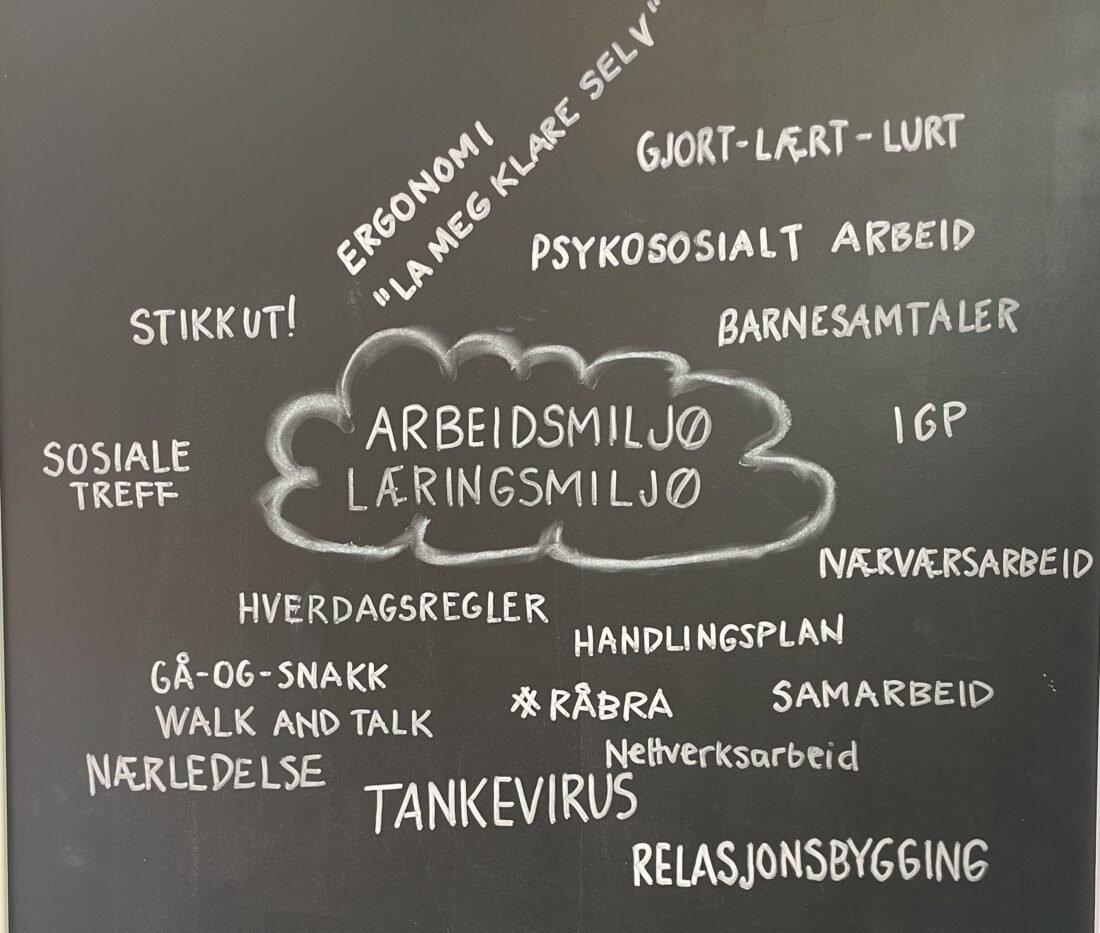 ERGONOMI
"LA MEG KLARE SELV"
GJORT-LÆRT-LURT
PSYKOSOSIALT ARBEID
STIKK UT!
BARNESAMTALER
ARBEIDSMILJØ
LÆRINGSMILJØ
IGP
SOSIALE
TREFF
NÆRVÆRSARBEID
HVERDAGSREGLER
HANDLINGSPLAN
GÅ-OG-SNAKK
WALK AND TALK
#RÅBRA
SAMARBEID
NÆRLEDELSE
Nettverksarbeid
TANKEVIRUS
RELASJONSBYGGING